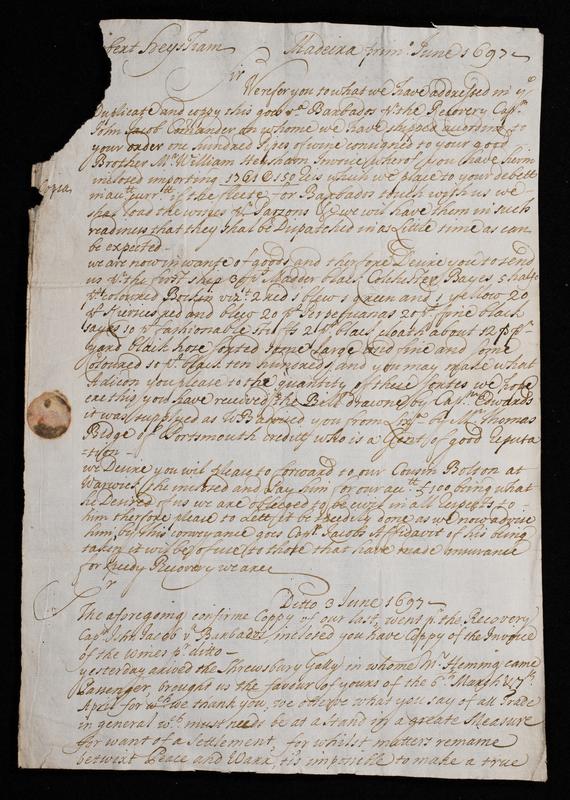 bert Heysham Madeira prim: June 1697
Sr
Wereferyou to what we have addressed in ye
Duplicate and coppy this goes via Barbados pr the Recovery Capn
John Jacob Comander on whome we have shipped according to
your order one hundred Pipes of wine consigned to your good
Brother Mr William Heysham Invoice whereof you have herein
inclosed importing 1761 150 reis which we place to your debett
in acctt currtt if the fleete for Barbados touch with us we
Copia
shal load the wines & we wil have them in such
readiness that they shal be Dispatched in as Little time as can
be expected
we are now in wante of goods and therfore Desire you to send
us pr the first ship 3 ps Madder black Colchester Bayes 5 halfe
ps coloured Bostin vizt 2 red 1 blew 1 green and 1 yellow 20
ps red and blew 20 ps Perpetuanas 20 ps fine black
sayes 10 ps fashionable stuffs 2 ps black cloath about 12 pr
yard black hose sorted some large and fine and some
coloured 10 ps black ten hundreds, and you may make what
Adicon you please to the quantity of these sortes we hope
ere this you have received the Bill drawne by Captn Edwards
it was supplyed as Wee advised you from by Mr Thomas
Ridge of Portsmouth credit who is a Gent of good reputa
tion
we Desire you wil please to forward to our Cousin Bolton at
Warwick the inclosed and Pay him for our acctt £100 being what
he Desired of us we are obleeged to be civil in all respects to
him therfore please to Lett it be speedily done as we now advise
him, by this conveyance goes Capn Jacobs Affidavit of his being
taken it wil be of use to those that have made assurance
for speedy Recovery we are
Sr
Ditto 3 June 1697
The aforegoing confirme Coppy of our last, went pr the Recovery
Capn John Jacob via Barbados, inclosed you have Coppy of the Invoice
of the Wines pr ditto
yesterday arived the Shrewsbury Gally in whome Mr Heming came
Passenger, brought us the favour of yours of the 6th March & 7th
April for wch we thank you, we observe what you say of all Trade
in general wch must needs be at a stand in a greate Measure
for want of a Settlement, for whilst matters remaine
betwixt Peace and Warr, tis imposible to make a true